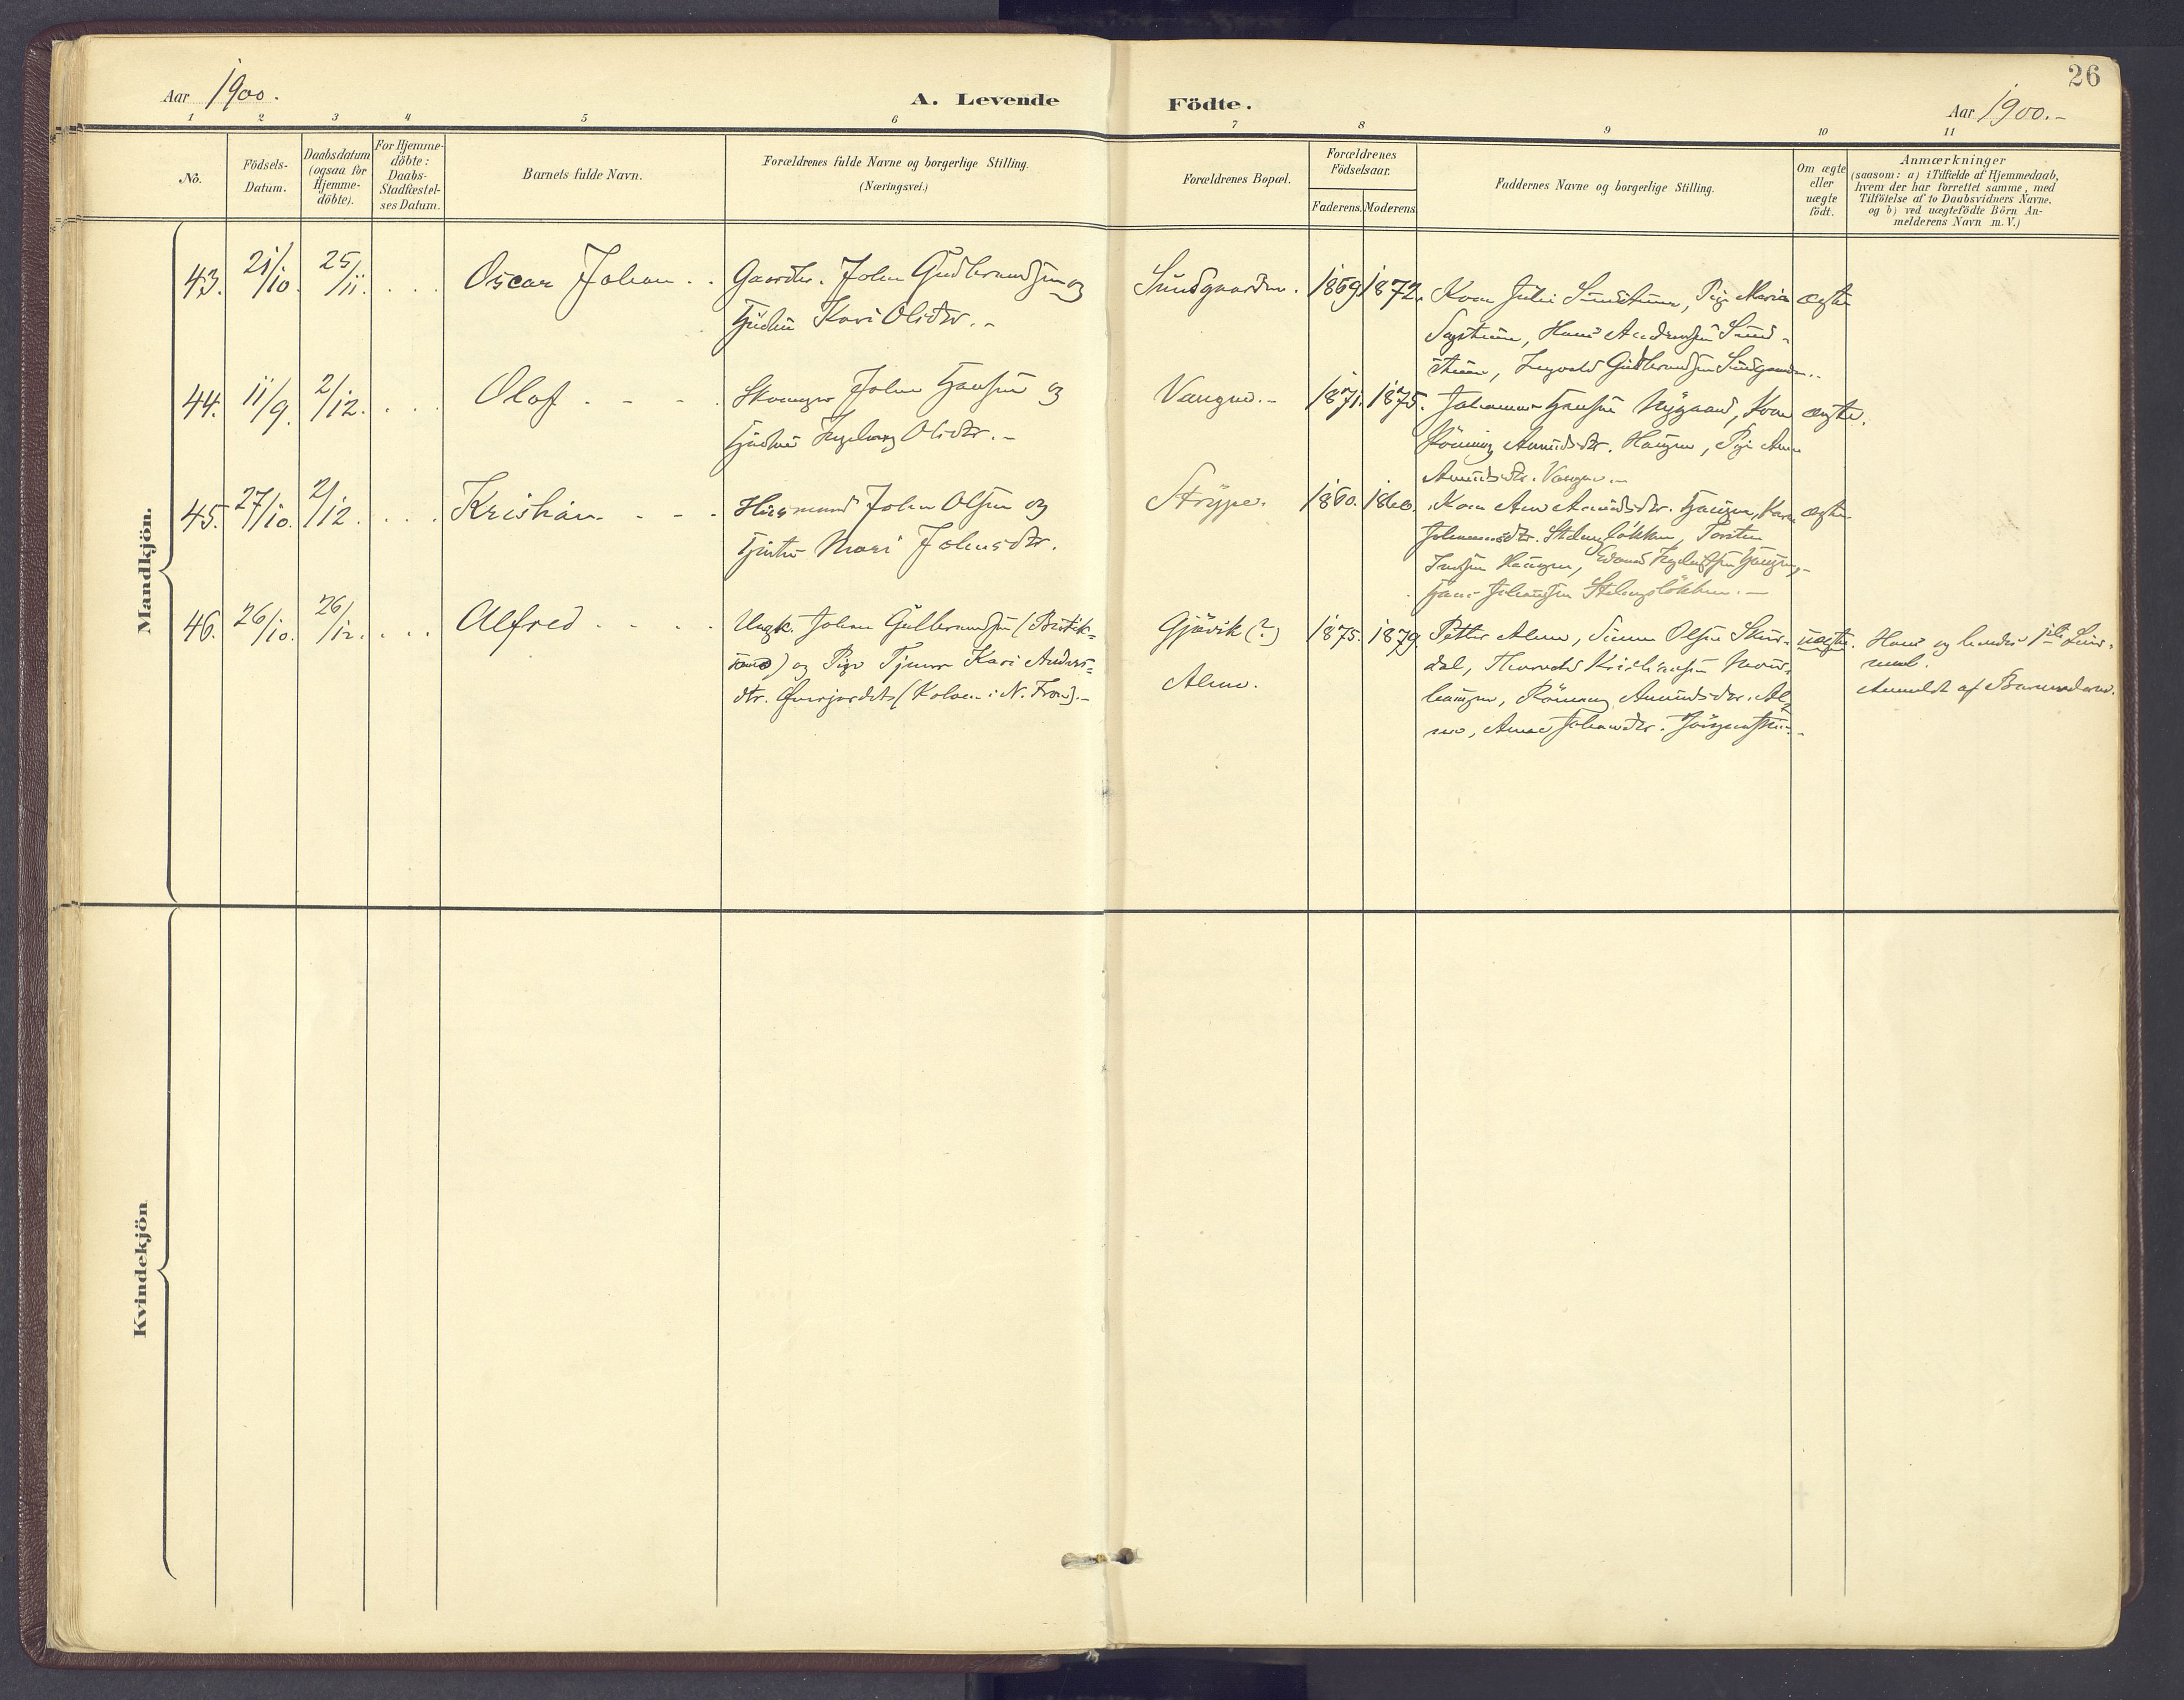 26
Aar 1900.
A. Levende Födte.
Aar 1900.-
1 2 3 4 5 6 7 8 9 10 11
No.
Födsels-
Datum.
Daabsdatum
(ogsaa for
Hjemme-
döbte).
For Hjemme-
döbte:
Daabs-
Stadfæstel-
ses Datum.
Barnets fulde Navn.
Forældrenes fulde Navne og borgerlige Stilling.
(Næringsvei.)
Forældrenes Bopæl.
Forældrenes
Födselsaar.
Faderens. Moderens.
Faddernes Navne og borgerlige Stilling.
Om ægte
eller
uægte
födt.
Anmærkninger
(saasom: a) i Tilfælde af Hjemmedaab,
hvem der har forrettet samme, med
Tilföielse af to Daabsvidners Navne.
og b) ved uægtefödte Börn An-
melderens Navn m. V.)
Mandkjön.
43. 21/10. 25/11. . . . Oscar Johan . . Gaardbr. Johan Gudbrandsen og
Hustru Kari Olsdtr. -
Sundgaarden. 1869 1872. Kone Julie Sundstuen, Pige Marie
Sygstuen, Hans Andersen Sund-
stuen, Ingvald Gudbrandsen Sundgaarden..
ægte
44. 11/9. 2/12. . . . Olaf . - - . Johan Hansen og
Hustru Ingeborg Olsdtr. -
Vangen. - 1871. 1875. Johannes Hansen Nygaard, Kone
Rönnaug Amundsdtr. Haugen, Pige Anne
Amundsdtr. Vangen. -
ægte.
45. 27/10. 2/12. . . . Kristian. - - . Husmand Johan Olsen og
Hustru Mari Johnsdtr.
Strype. 1860. 1860. Kone Ane Amundsdtr. Haugen, Karen
Johannesdtr. Stalengslökken, Torsten
Haugen, Edvard Haugen,
Hans Johansen Stalengslökken. -
ægte
46. 26/10. 26/12. . . . Alfred . . . . Ungk. Johan Gulbrandsen (Butik-
) og Pige Tjener Kari Anders-
dtr. (Kolven i N. Fron). -
Gjövik (?)
Alme.
1875. 1879. Petter Alme, Simen Olsen Skur-
dal, Thorvald Kristiansen Moes-
haugen, Rönnaug Amundsdtr. Al-
me, Anne Johansdtr.
uægte. Hans og hendes 1ste Leier-
maal.
Anmeldt af Barnefaderen.
Kvindekjön